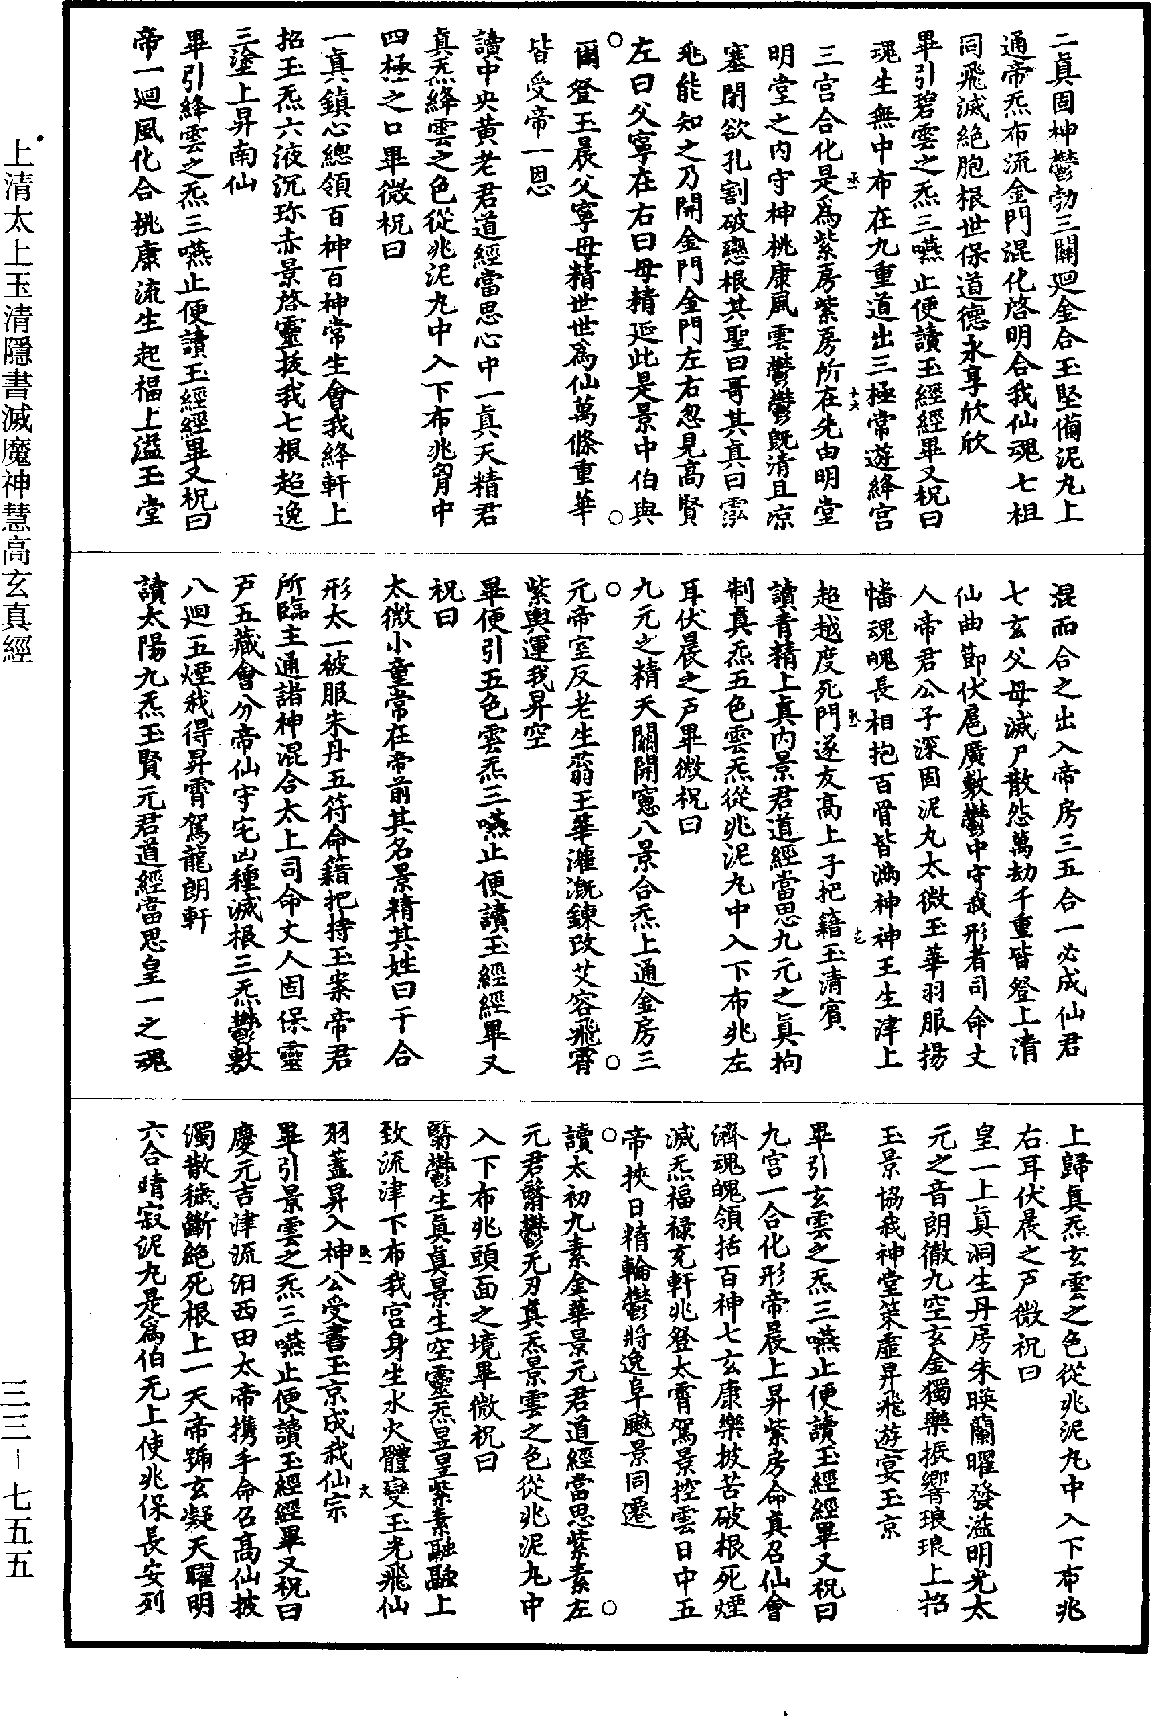 二真固神鬱勃三關迴金合玉堅備泥丸上
通帝炁布流金門混化啓明合我仙魂七祖
同飛滅絶胞根世保道德永享欣欣
畢引碧雲之炁三嚥止便讀玉經經畢又祝曰
魂生無中布在九重道出三極常遊絳宮
三宮合化是爲紫房紫房所在先由明堂
明堂之内守神桃康風雲鬱鬱既清且凉
塞閉欲孔割破戀根其聖曰哥其真曰
兆能知之乃開金門金門左右忽見高賢
左曰父寧在右曰母精延此是景中伯與
爾登玉晨父寧母精世世爲仙萬條重華
皆受帝一恩
讀中央黄老君道經當思心中一真天精君
真炁絳雲之色從兆泥丸中入下布兆胷中
四極之口畢微祝曰
一真鎮心總領百神百神常生會我絳軒上
招玉炁六液沉珎赤景啓靈拔我七根超逸
三塗上昇南仙
畢引絳雲之炁三嚥止便讀玉經經畢又祝曰
帝一迴風化合桃康流生起福上溢玉堂
混而合之出入帝房三五合一必成仙君
七玄父母滅尸散怨萬劫千重皆登上清
仙曲節伏扈廣敷鬱中守我形者司命丈
人帝君公子深固泥丸太微玉華羽服揚
幡魂魄長相抱百骨皆满神神王生津上
超越度死門遂友高上子把籍玉清賓
讀青精上真内景君道經當思九元之真拘
制真炁五色雲炁從兆泥丸中入下布兆左
耳伏晨之戸畢微祝曰
九元之精天關開窻八景合炁上通金房三
元帝室反老生翁王華灌溉鍊改艾容飛霄
紫輿運我昇空
畢便引五色雲炁三嚥止便讀玉經經畢又
祝曰
太微小童常在帝前其名景精其姓曰干合
形太一被服朱丹五符命籍把持玉案帝君
所臨主通諸神混合太上司命丈人固保靈
戸五藏會分帝仙守宅凶種滅根三炁鬱敷
八迴五煙我得昇霄駕龍朗軒
讀太陽九炁玉賢元君道經當思皇一之魂
上歸真炁玄雲之色從兆泥丸中入下布兆
右耳伏晨之戸微祝曰
皇一上真洞生丹房朱暎蘭曜發溢明光太
元之音朗徹九空玄金獨藥振響琅琅上招
玉景協我神堂策虚昇飛遊宴玉京
畢引玄雲之炁三嚥止便讀玉經經畢又祝曰
九宮一合化形帝晨上昇紫房命真召仙會
濟魂魄領括百神七玄康樂披苦破根死煙
滅炁福禄充軒兆登太霄駕景控雲日中五
帝挾日精輪鬱將逸阜飈景同遷
讀太初九素金華景元君道經當思紫素左
元君翳鬱无刃真炁景雲之色從兆泥丸中
入下布兆頭面之境畢微祝曰
翳鬱生真真景生空靈炁昱昱紫素融融上
致流津下布我宮身生水火體變玉光飛仙
羽蓋昇入神公受書玉京成我仙宗
畢引景雲之炁三嚥止便讀玉經經畢又祝曰
慶元吉津流汨西田太帝攜手命召高仙披
濁散穢斷絶死根上一天帝號玄凝天曜明
六合晴寂泥丸是爲伯无上使兆保長安列
上清太上玉清隱書滅魔神慧高玄真經
三三－七五五